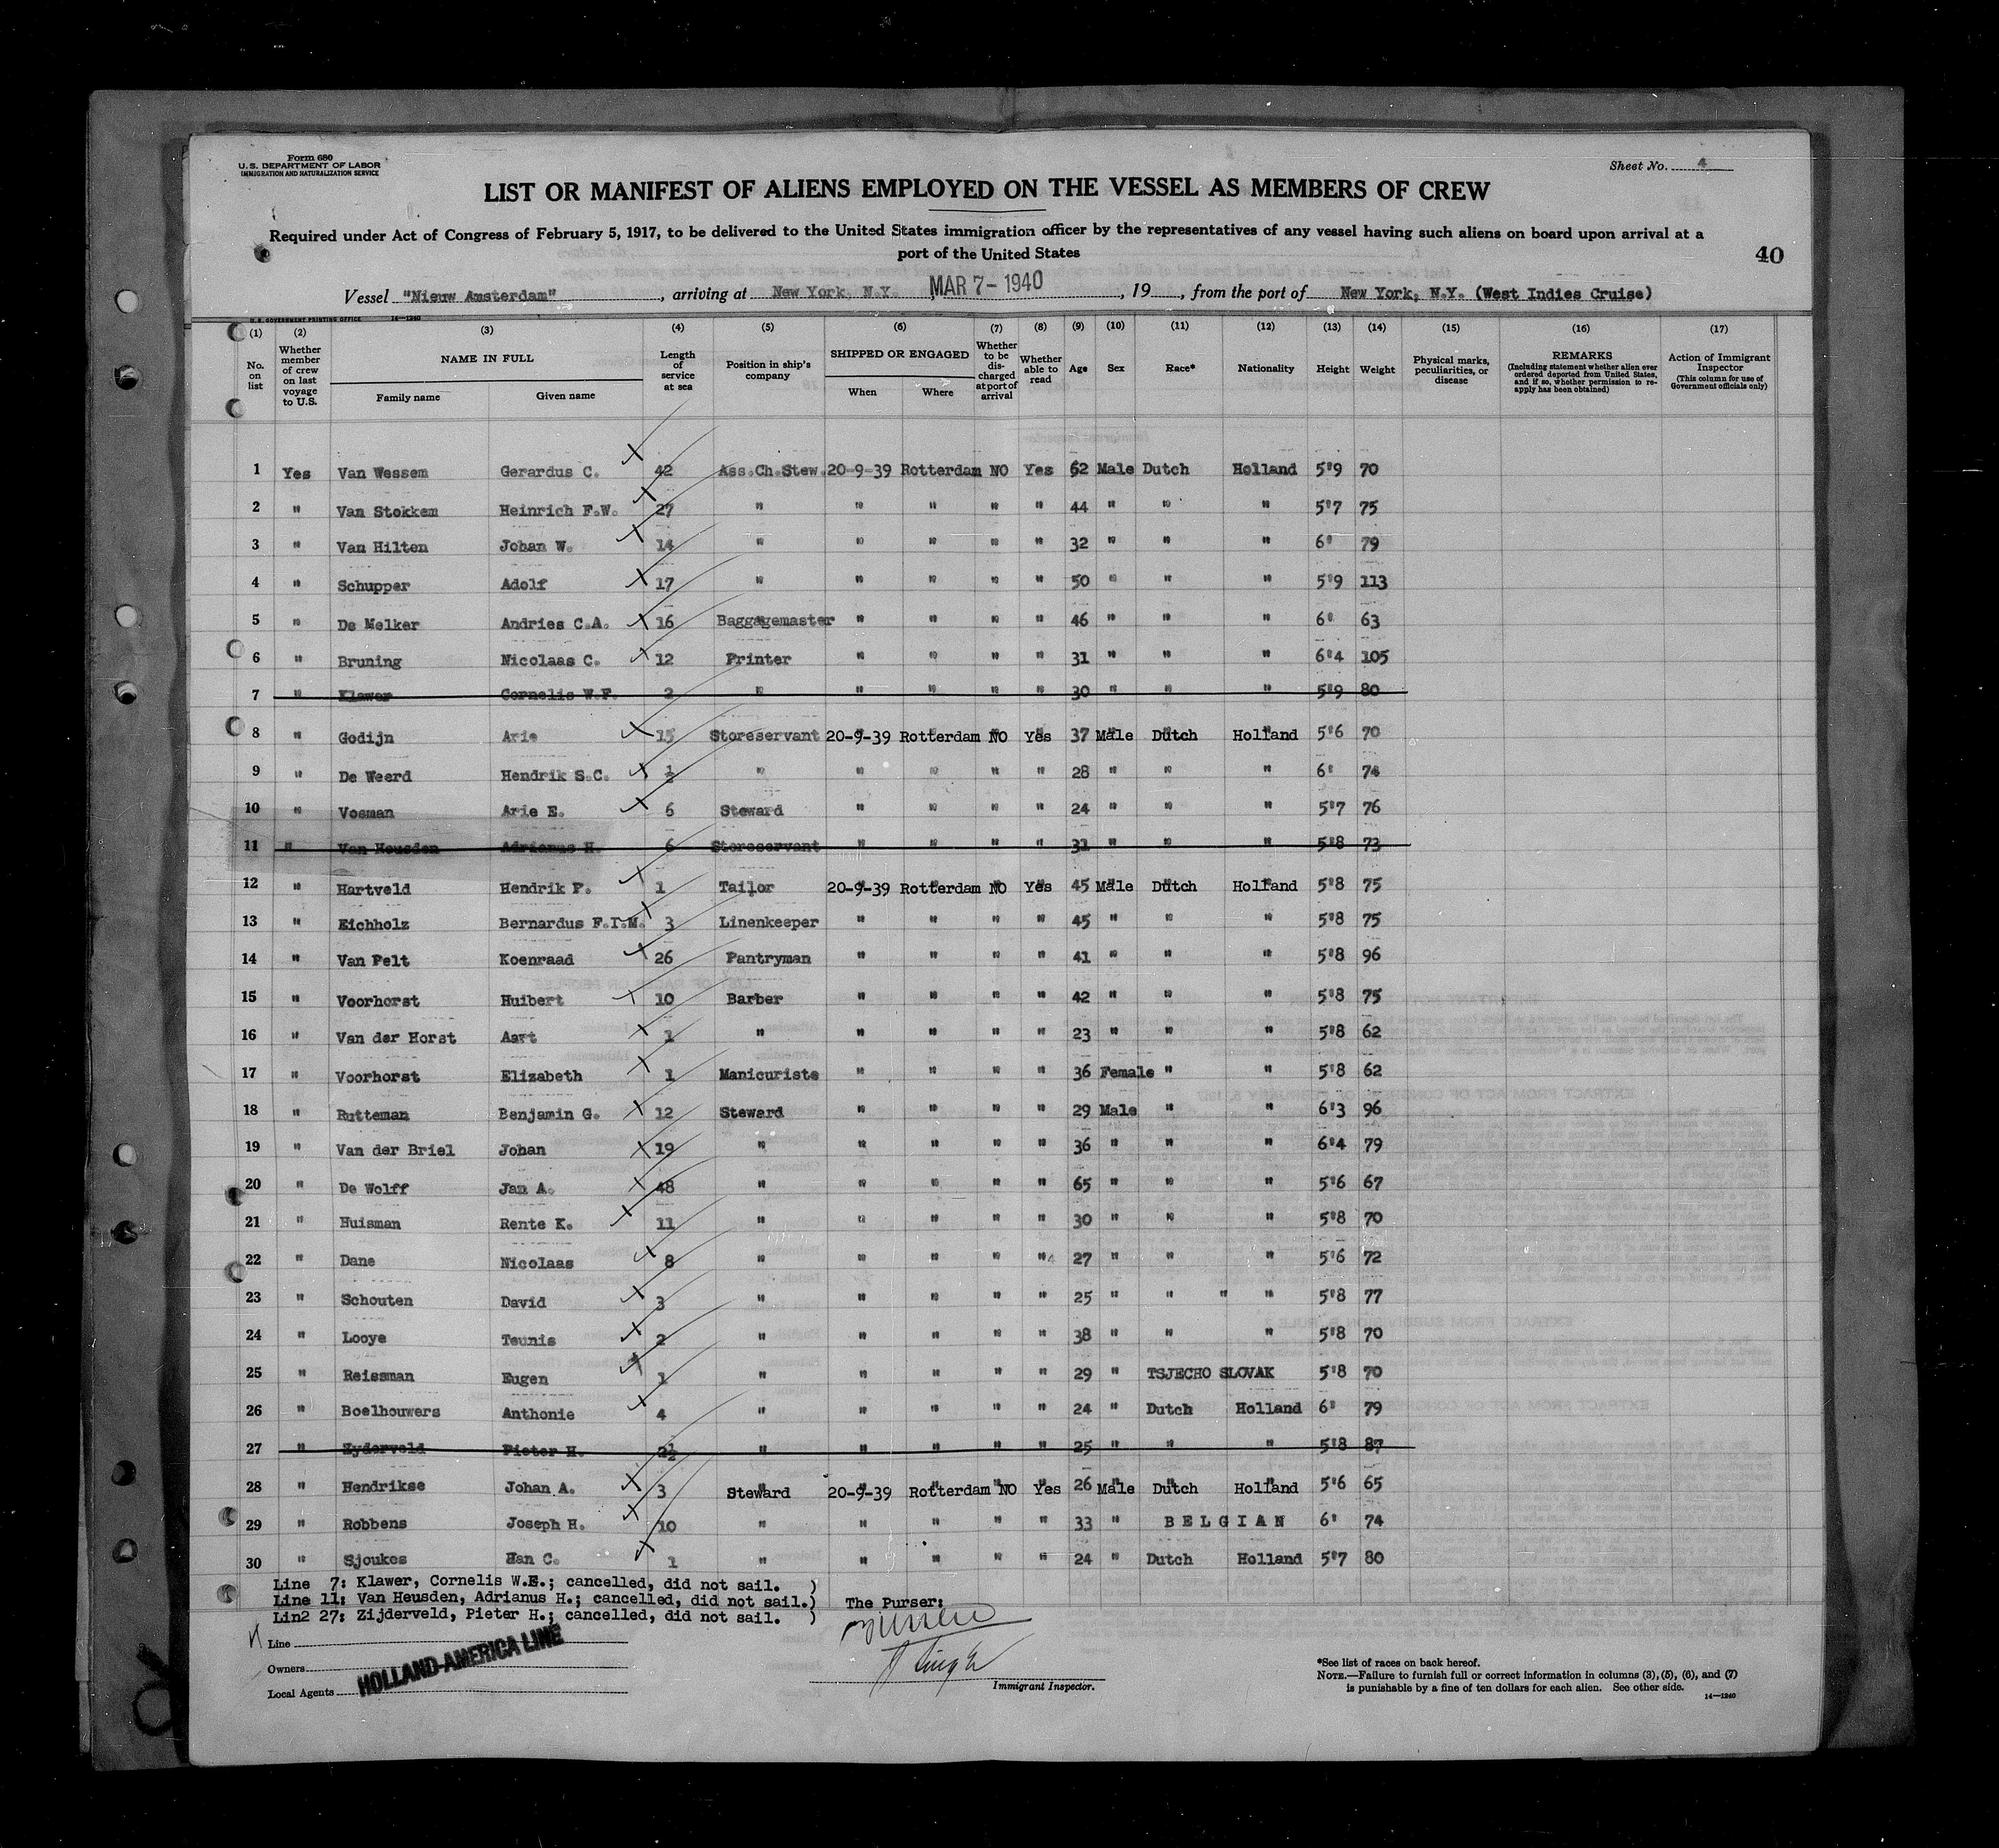 Form 680
U. S. DEPARTMENT OF LABOR
IMMIGRATION AND NATURALIZATION SERVICE
Sheet No. 4
LIST OR MANIFEST OF ALIENS EMPLOYED ON THE VESSEL AS MEMBERS OF CREW
Required under Act of Congress of February 5, 1917, to be delivered to the United States immigration officer by the representatives of any vessel having such aliens on board upon arrival at a
port of the United States
40
Vessel "Nieuw Amsterdam", arriving at New York, N.Y. MAR 7 - 1940, 19, from the port of New York, N.Y. (West Indies Cruise)
U. S. GOVERNMENT PRINTING OFFICE 14—1240
(1) (2) (3) (4) (5) (6) (7) (8) (9) (10) (11) (12) (13) (14) (15) (16) (17)
No. on list
Whether member of crew on last voyage to U.S.
NAME IN FULL
Family name
Given name
Length of service at sea
Position in ship's company
SHIPPED OR ENGAGED
When
Where
Whether to be discharged at port of arrival
Whether able to read
Age
Sex
Race*
Nationality
Height
Weight
Physical marks, peculiarities, or disease
REMARKS
(Including statement whether alien ever ordered deported from United States, and if so, whether permission to reapply has been obtained)
Action of Immigrant Inspector
(This column for use of Government officials only)
1 Yes Van Wessem Gerardus C. 42 Ass.Ch.Stew. 20-9-39 Rotterdam NO Yes 62 Male Dutch Holland 5'9 70
2 " Van Stokkem Heinrich F.W. 27 " " " " " 44 " " " 5'7 75
3 " Van Hilten Johan W. 14 " " " " " 32 " " " 6' 79
4 " Schupper Adolf 17 " " " " " 50 " " " 5'9 113
5 " De Melker Andries C.A. 16 Baggagemaster " " " " 46 " " " 6' 63
6 " Bruning Nicolaas C. 12 Printer " " " " 31 " " " 6'4 105
7 " Klawer Cornelis W.F. 2 " " " " " 30 " " " 5'9 80
8 " Godijn Arie 15 Storeservant 20-9-39 Rotterdam NO Yes 37 Male Dutch Holland 5'6 70
9 " De Weerd Hendrik S.C. ½ " " " " " 28 " " " 6' 74
10 " Vosman Arie E. 6 Steward " " " " 24 " " " 5'7 76
11 " Van Heusden Adrianus H. 6 Storeservant " " " " 31 " " " 5'8 73
12 " Hartveld Hendrik P. 1 Tailor 20-9-39 Rotterdam NO Yes 45 Male Dutch Holland 5'8 75
13 " Eichholz Bernardus F.I.M. 3 Linenkeeper " " " " 45 " " " 5'8 75
14 " Van Pelt Koenraad 26 Pantryman " " " " 41 " " " 5'8 96
15 " Voorhorst Huibert 10 Barber " " " " 42 " " " 5'8 75
16 " Van der Horst Aart 1 " " " " " 23 " " " 5'8 62
17 " Voorhorst Elizabeth 1 Manicuriste " " " " 36 Female " " 5'8 62
18 " Rutteman Benjamin G. 12 Steward " " " " 29 Male " " 6'3 96
19 " Van der Briel Johan 19 " " " " " 36 " " " 6'4 79
20 " De Wolff Jan A. 48 " " " " " 65 " " " 5'6 67
21 " Huisman Rente K. 11 " " " " " 30 " " " 5'8 70
22 " Dane Nicolaas 8 " " " " " 27 " " " 5'6 72
23 " Schouten David 3 " " " " " 25 " " " " 5'8 77
24 " Looye Teunis 2 " " " " " 38 " " " 5'8 70
25 " Reissman Eugen 1 " " " " " 29 " TSJECHO SLOVAK 5'8 70
26 " Boelhouwers Anthonie 4 " " " " " 24 " Dutch Holland 6' 79
27 " Zyderveld Pieter H. 2½ " " " " " 25 " " " 5'8 87
28 " Hendrikse Johan A. 3 Steward 20-9-39 Rotterdam NO Yes 26 Male Dutch Holland 5'6 65
29 " Robbens Joseph H. 10 " " " " " 33 " BELGIAN 6' 74
30 " Sjoukes Han C. 1 " " " " " 24 " Dutch Holland 5'7 80
Line 7: Klawer, Cornelis W.E.; cancelled, did not sail. )
Line 11: Van Heusden, Adrianus H.; cancelled, did not sail.) The Purser:
Lin2 27: Zijderveld, Pieter H.; cancelled, did not sail. )
Line
Owners
Local Agents
HOLLAND-AMERICA LINE
Immigrant Inspector.
*See list of races on back hereof.
NOTE.—Failure to furnish full or correct information in columns (3), (5), (6), and (7)
is punishable by a fine of ten dollars for each alien. See other side.
14—1240